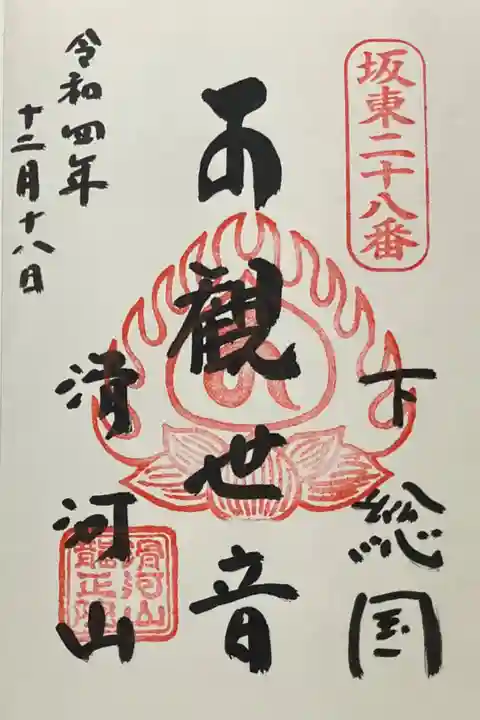 坂東二十八番
下総国
観世音
滑河山
滑河山
龍正院
令和四年
十二月十八日